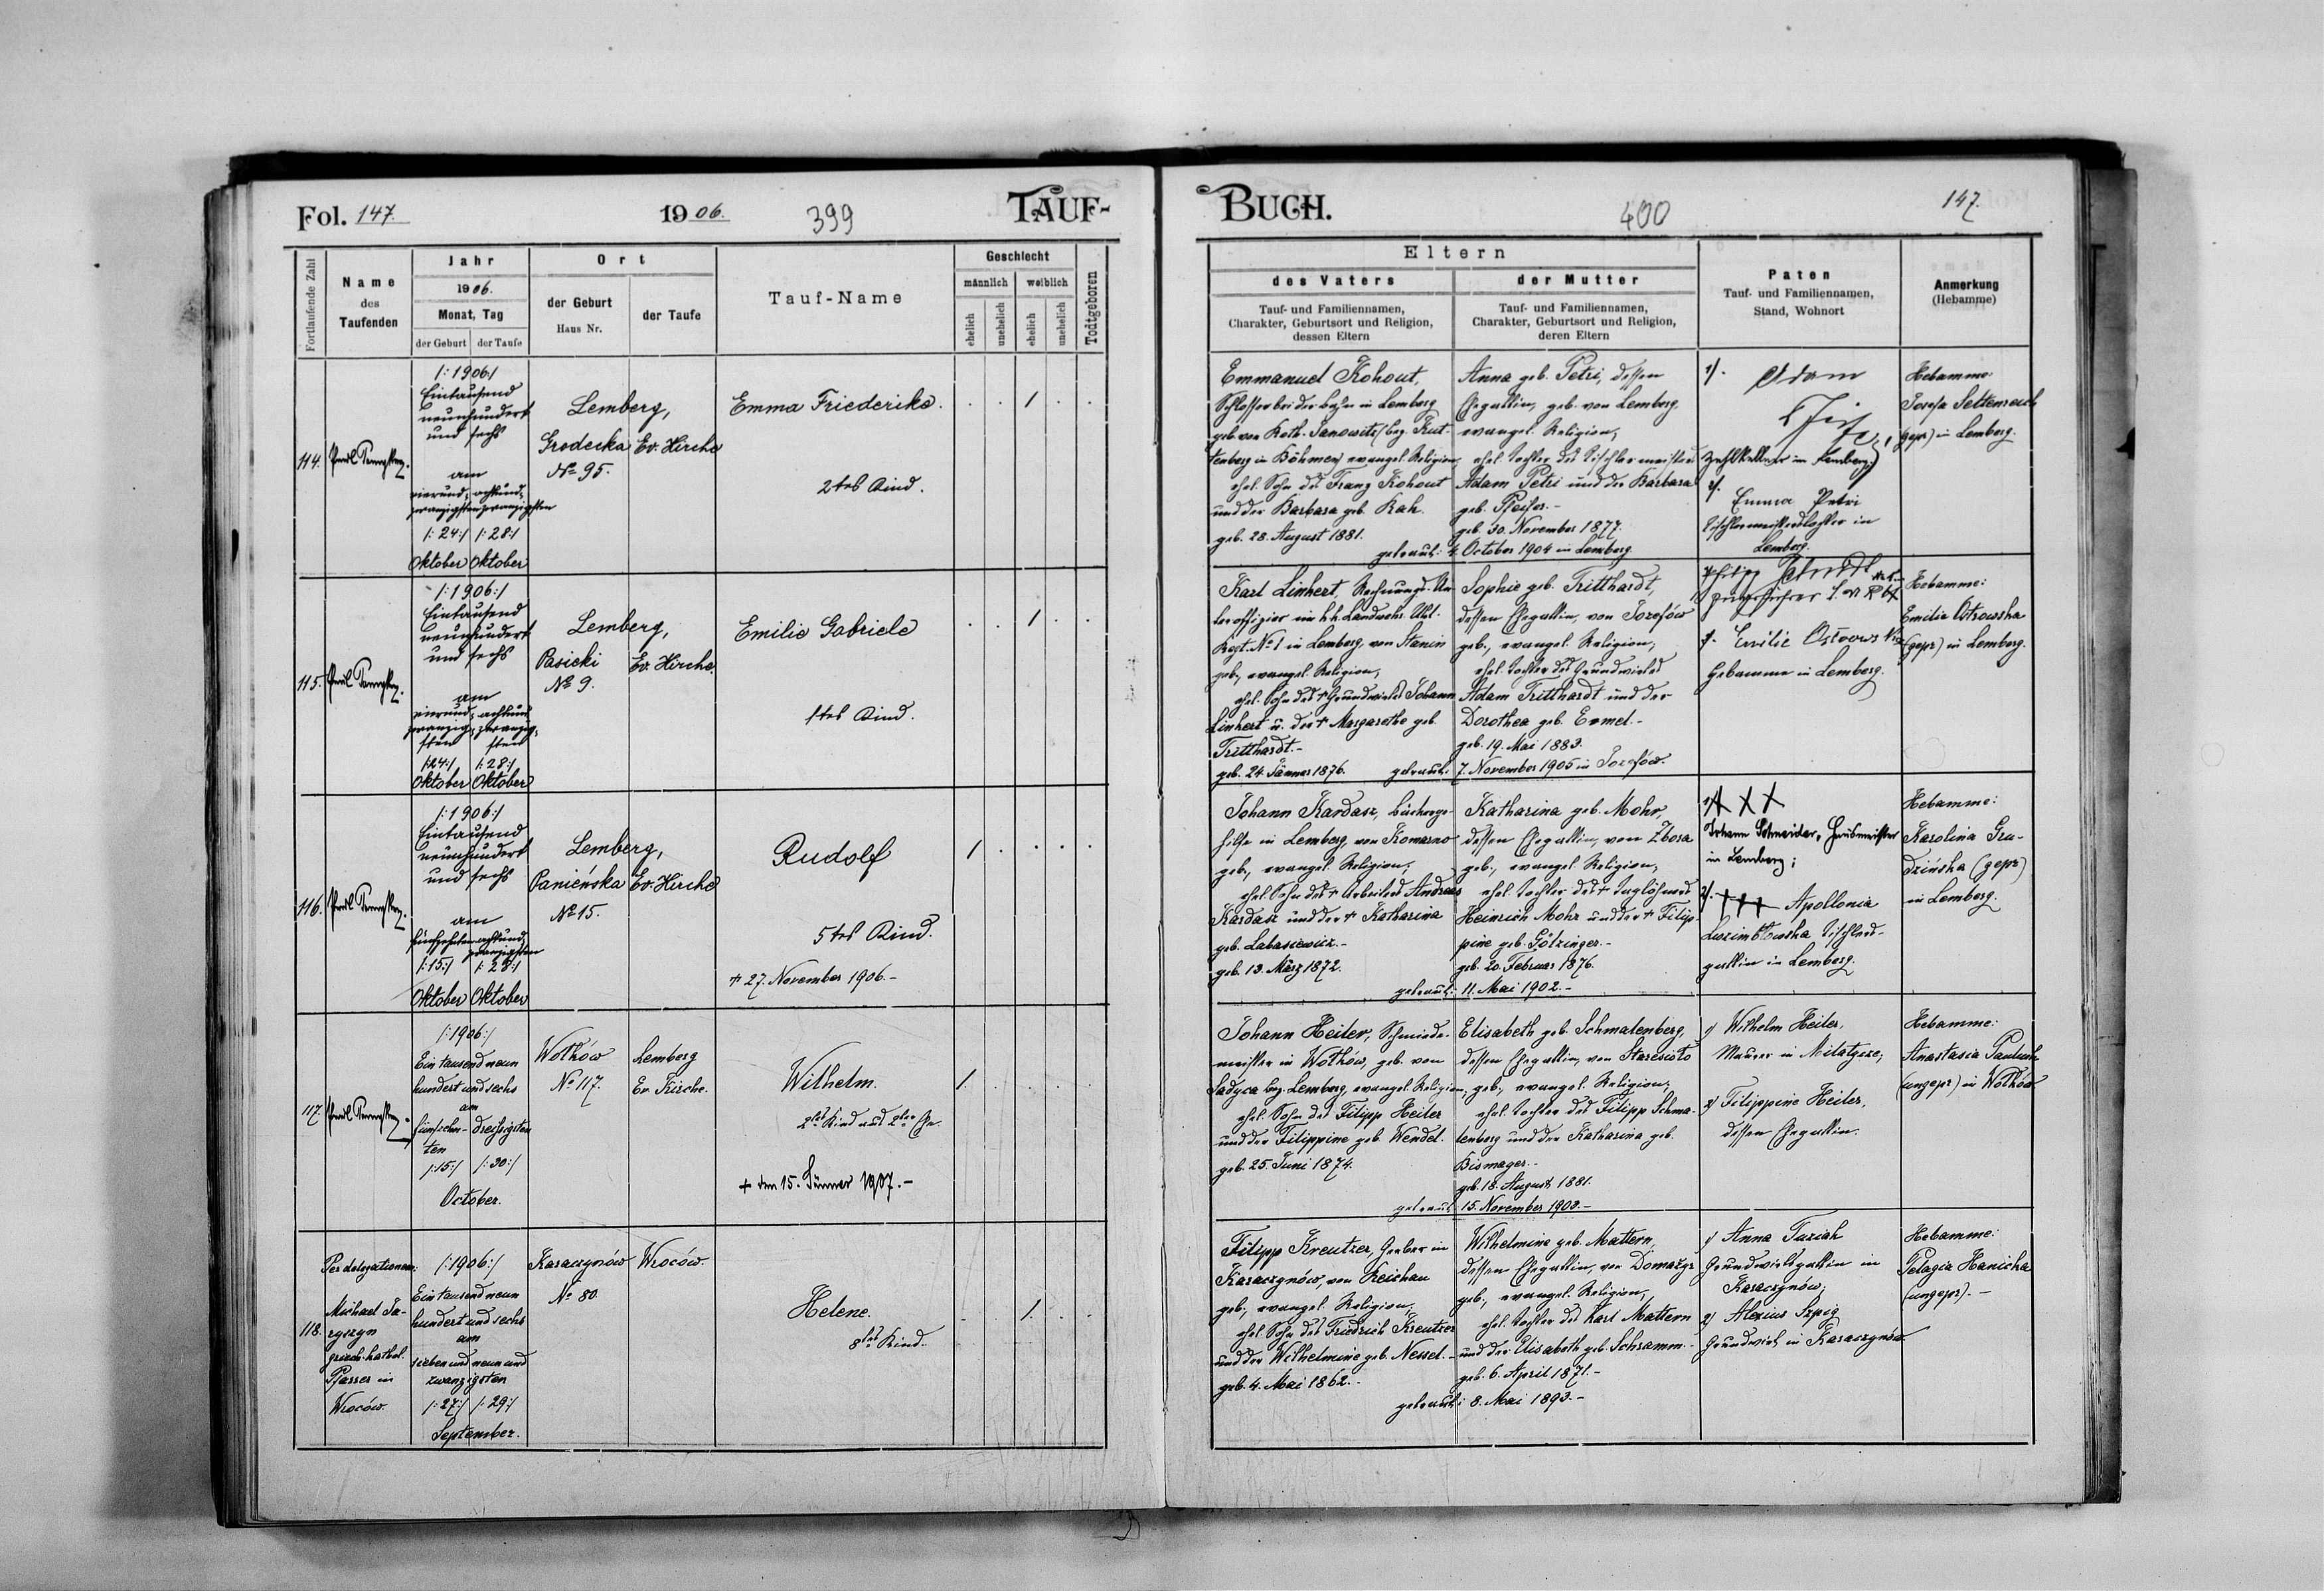 Fol. 147.
1906.
399
TAUF-
Fortlaufende Zahl
Name
des
Taufenden
Jahr
1906.
Monat, Tag
der Geburt
der Taufe
Ort
der Geburt
Haus Nr.
der Taufe
Tauf-Name
Geschlecht
männlich
weiblich
ehelich
unehelich
ehelich
unehelich
Todtgeboren
114.
/:1906:/
Eintausend
neunhundert
und sechs
am
vierund- achtund-
zwanzigsten zwanzigsten
/:24:/ /:28:/
Oktober Oktober
Lemberg,
Grodecka Ev. Kirche
No 95.
Emma Friederike.
2tes Kind.
. . 1 . .
115.
/:1906:/
Eintausend
neunhundert
und sechs
am
vierund- achtund
zwanzig- zwanzig-
sten sten
/:24:/ /:28:/
Oktober Oktober
Lemberg,
Pasieki Ev. Kirche
No 9.
Emilie Gabriele
1tes Kind.
. . 1 . .
116.
/:1906:/
Eintausend
neunhundert
und sechs
am
fünfzehnten achtund-
zwanzigsten
/:15:/ /:28:/
Oktober Oktober
Lemberg,
Panieńska Ev. Kirche
No 15.
Rudolf
5tes Kind.
+ 27. November 1906.-
1 . . . .
117.
/:1906:/
Ein tausend neun
hundert und sechs
am
fünfzehn- dreißigsten
ten
/:15:/ /:30:/
October.
Wołków Lemberg
No 117. Ev. Kirche.
Wilhelm.
2tes Kind aus 2ter Ehe.
+ den 15. Jänner 1907.-
1. . . . .
118.
Per delegationem:
Michael
griech. kathol.
Pfarrer in
Wroców.
/:1906:/
Ein tausend neun
hundert und sechs
am
sieben und neun und
zwanzigsten
/:27:/ /:29:/
September.
Karaczynów Wroców.
No 80.
Helene.
8tes Kind.
. . 1. . .
BUCH.
400
147.
Eltern
des Vaters
Tauf- und Familiennamen,
Charakter, Geburtsort und Religion,
dessen Eltern
der Mutter
Tauf- und Familiennamen,
Charakter, Geburtsort und Religion,
deren Eltern
Paten
Tauf- und Familiennamen,
Stand, Wohnort
Anmerkung
(Hebamme)
Emmanuel Kohout,
Schlosser bei der Bahn in Lemberg
geb. von Roth-Janowitz/bez. Kut-
tenberg in Böhmen/ evangel. Religion
ehel. Sohn des Franz Kohout
und der Barbara geb. Kah.
geb. 28. August 1881.
Anna geb. Petri, dessen
Ehegattin, geb. von Lemberg
evangel. Religion,
ehel. Tochter des Tischlermeisters
Adam Petri und der Barbara
geb. Pfeifer.-
geb. 30. November 1877.
getraut: 4. October 1904 in Lemberg
1/. Adam
Zahlkellner in Lemberg;
2/.
Emma Petri
Tischlermeisterstochter in
Lemberg.
Hebamme:
Josefa Settenreich
(gepr) in Lemberg.
Karl Linhert, Rechnungs-Un-
teroffizier im k.k. Landwehr Uhl.
Regt. No 1 in Lemberg, von Stanin
geb., evangel. Religion,
ehel. Sohn des + Grundwirtes Johann
Linhert u. der + Margarethe geb.
Tritthardt.-
geb. 24. Jänner 1876.
Sophie geb. Tritthardt,
dessen Ehegattin, von Josefów
geb., evangel. Religion,
ehel. Tochter des Grundwirtes
Adam Tritthardt und der
Dorothea geb. Ermel.-
geb. 19. Mai 1883.
getraut: 7. November 1905 in Josefów.
Philipp
2. Emilie Ostrowska
Hebamme in Lemberg.
Hebamme:
Emilie Ostrowska
(gepr) in Lemberg.
Johann Kardasz, Bäckerge-
hilfe in Lemberg, von Komarno
geb., evangel. Religion;
ehel. Sohn des + Arbeiters Andreas
Kardasz und der + Katharina
geb. Labaszewicz.-
geb. 13. März 1872.
Katharina geb. Mohr,
dessen Ehegattin, von Zbora
geb., evangel. Religion,
ehel. Tochter des + Taglöhners
Heinrich Mohr und der + Filip-
pine geb. Götzinger.-
geb. 20. Februar 1876.
getraut: 11. Mai 1902.-
1/ X X X
Johann Schneider, Hausmeister
in Lemberg;
2/. +++ Apollonia
Tischlers-
gattin in Lemberg.
Hebamme:
Karolina Gru-
dzińska (gepr)
in Lemberg.
Johann Heiler, Schmiede-
meister in Wołków, geb. von
Sadyca bez. Lemberg, evangel. Religion,
ehel. Sohn des Filipp Heiler
und der Filippine geb. Wendel.
geb. 25. Juni 1874.
Elisabeth geb. Schmalenberg,
dessen Ehegattin, von Staresioło
geb., evangel. Religion,
ehel. Tochter des Filipp Schma-
lenberg und der Katharina geb.
Bismager.-
geb. 18. August 1881.
getraut 15. November 1903.-
1/ Wilhelm Heiler,
Maurer in Milatycze;
2/ Filippine Heiler,
dessen Ehegattin.
Hebamme:
Anastasia Pauluch
(ungepr) in Wołków
Filipp Kreutzer, Gerber in
Karaczynów, von Reichau
geb., evangel. Religion,
ehel. Sohn des Friedrich Kreutzer
und der Wilhelmine geb. Nessel.-
geb. 4. Mai 1862.-
Wilhelmine geb. Mattern,
dessen Ehegattin, von Domażyr
geb., evangel. Religion,
ehel. Tochter des Karl Mattern
und der Elisabeth geb. Schramm.-
geb. 6. April 1871.-
getraut: 8. Mai 1893.-
1/ Anna Tuziak
Grundwirtsgattin in
Karaczynów;
2/ Alexius Szpig
Grundwirt in Karaczynów.
Hebamme:
Pelagia Hanicka
(ungepr).-